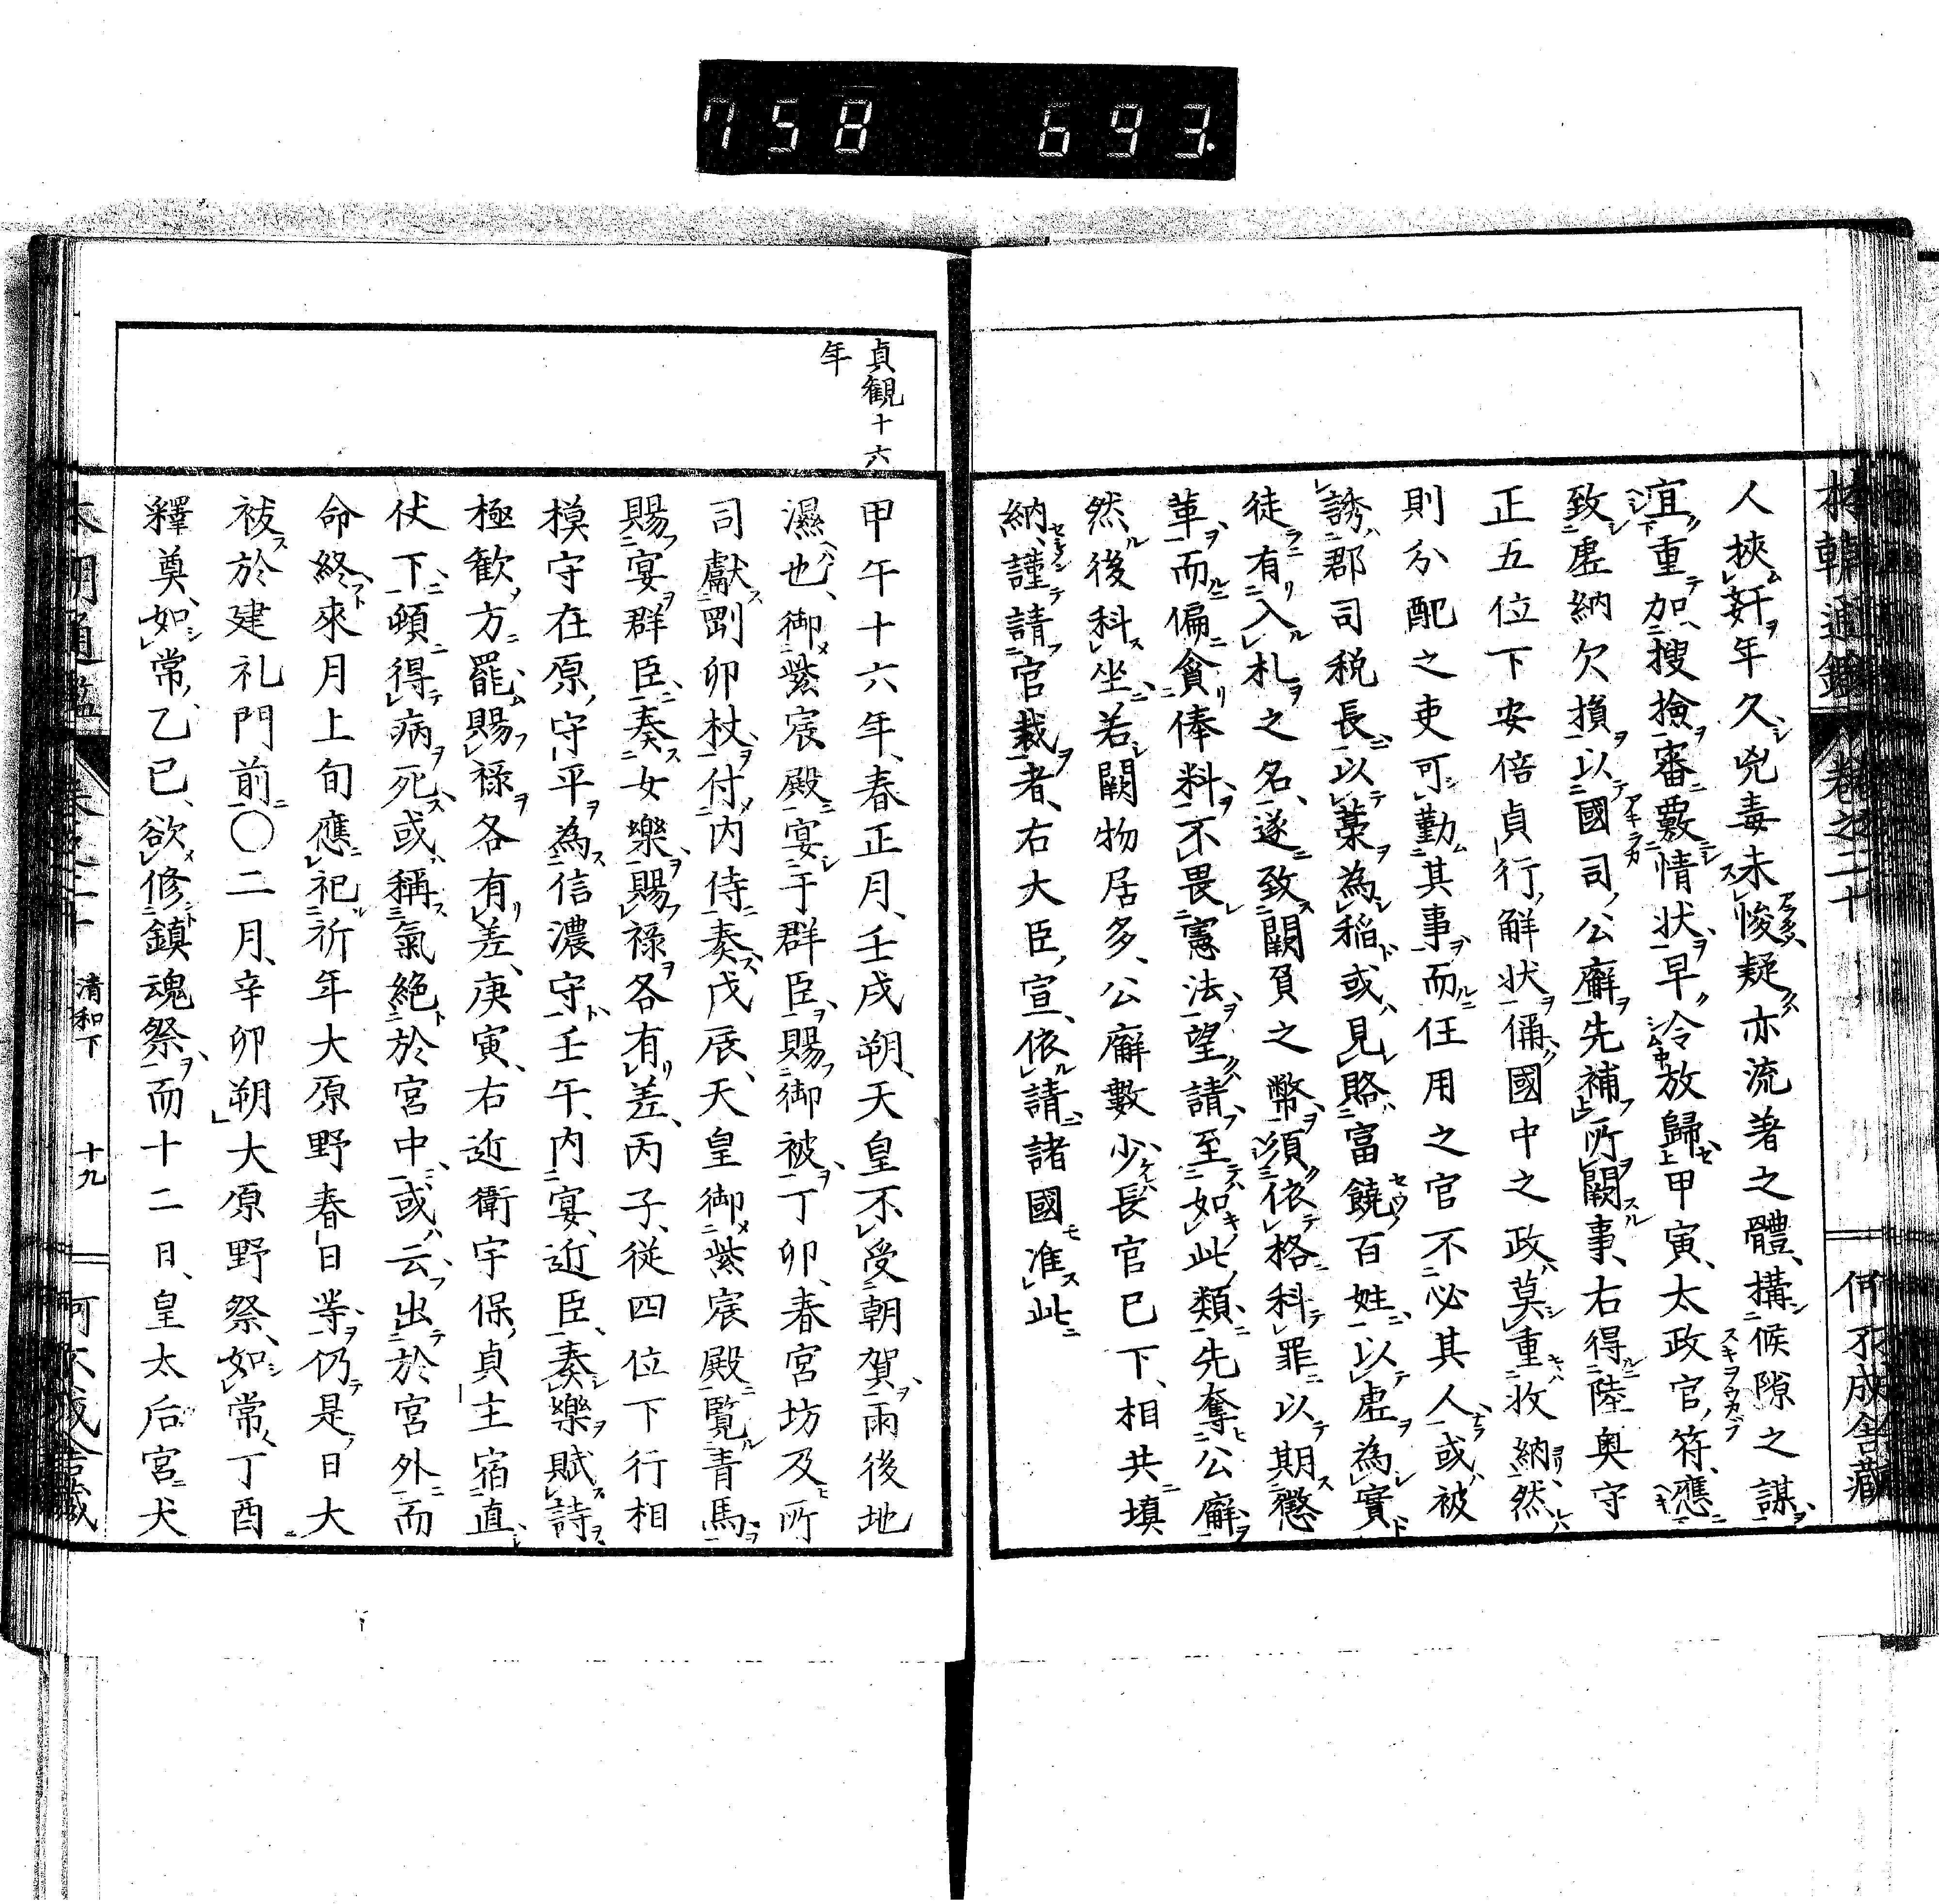 758 693.
人挾奸年久兇毒未悛疑亦流著之體、構候隙之謀
宜重加、搜撿審覈情状早令放歸甲寅、太政官符、應
致虚納欠損以國司公廨先補所闕事、右得陸奥守
正五位下安倍貞行解状偁國中之政莫重收納然
則分配之吏可勤其事而任用之官不必其人或被
誘郡司税長以藁為稲或見賂富饒百姓以虚為實
徒有入札之名遂致闕負之幣須依格科罪以期懲
革而偏貪俸料不畏憲法望請至如此類先奪公廨
然後科坐若闕物居多、公廨數少長官已下、相共填
納、謹請官裁者、右大臣宣、依請諸國准此
貞観十六
年
甲午十六年、春正月、壬戌朔、天皇不受朝賀雨後地
濕也、御紫宸殿宴于群臣賜御被丁卯、春宮坊及所
司獻剛卯杖付内侍奏戊辰、天皇御紫宸殿覧青馬
賜宴群臣奏女樂賜禄各有差、丙子、従四位下行相
模守在原守平為信濃守壬午、内宴、近臣奏樂賦詩
極歓方罷賜禄各有差、庚寅、右近衛宇保貞主宿直
伏下頓得病死或稱氣絶於宮中或云出於宮外而
命終來月上旬應祀祈年大原野春日等仍是日大
祓於建礼門前〇二月、辛卯朔大原野祭、如常丁酉
釋奠、如常、乙巳、欲修鎮魂祭而十二日、皇太后宮犬
清和下
十九